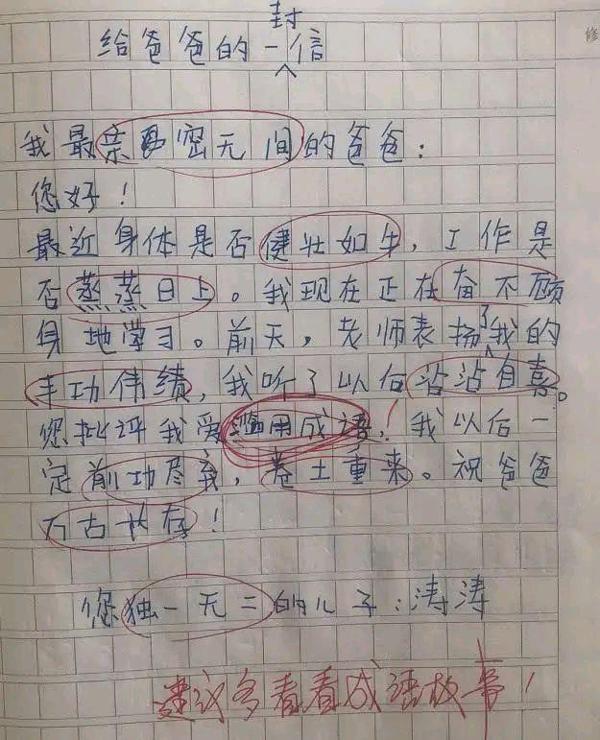 给爸爸的一封信
我最亲密无间的爸爸：
您好！
最近身体是否健壮如牛，工作是
否蒸蒸日上。我现在正在奋不顾
身地学习。前天，老师表扬了我的
丰功伟绩，我听了以后沾沾自喜。
您批评我爱滥用成语，！我以后一
定前功尽弃，卷土重来。祝爸爸
万古长存！
您独一无二的儿子：涛涛
建议多看看成语故事！